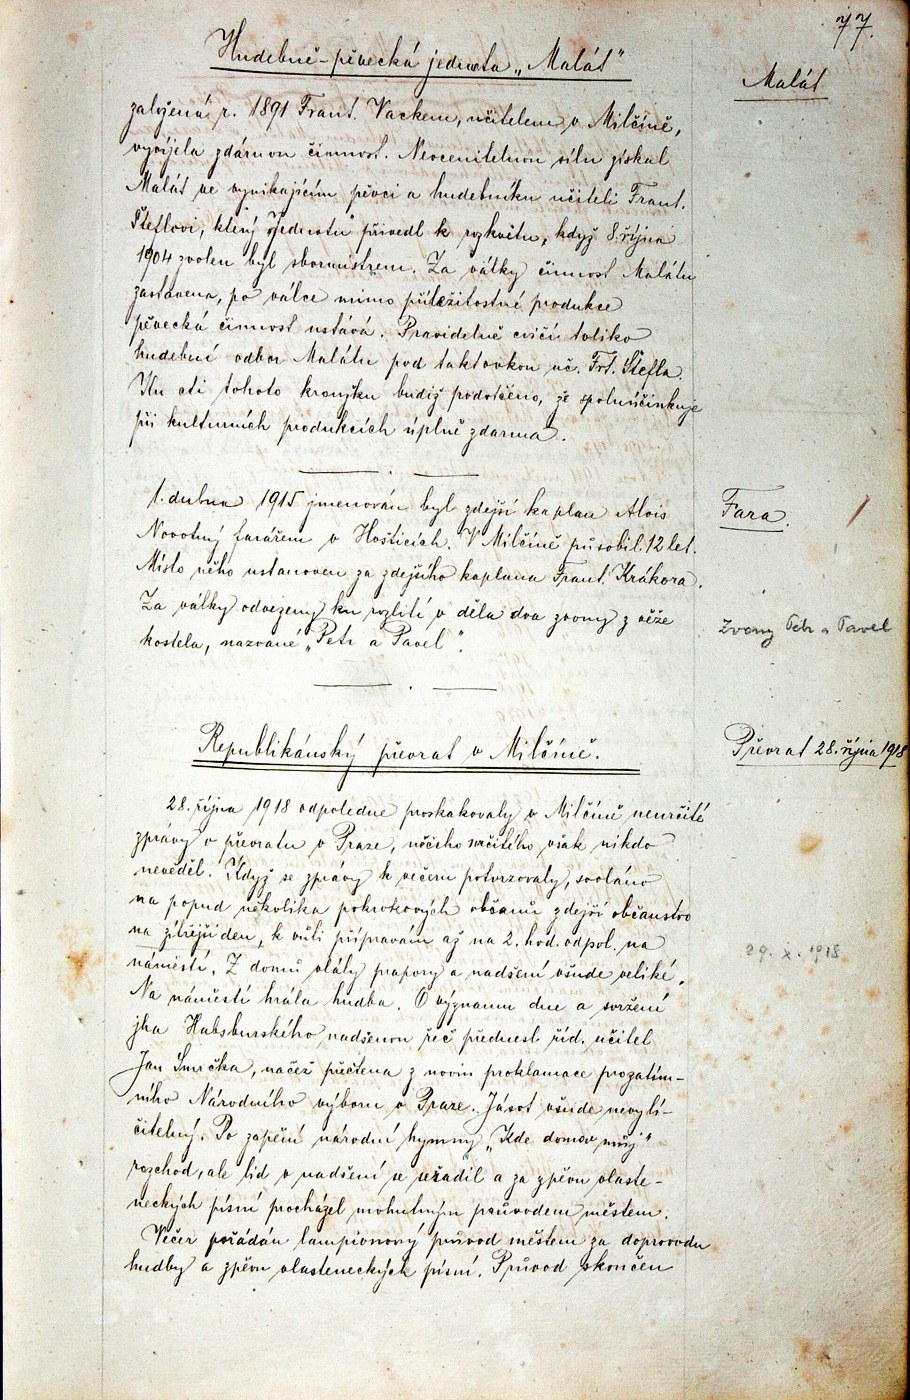 77.
Hudebně-pěvecká jednota „Malát"
Malát
založená r. 1891 Frant. Vackem, učitelem v Milčíně,
vyvíjela zdárnou činnost. Neocenitelnou sílu získal
Malát ve vynikajícím pěvci a hudebníku učiteli Frant.
Šteflovi, který Jednotu přivedl k rozkvětu, když 8. října
1904 zvolen byl sbormistrem. Za války činnost Malátu
zastavena, po válce mimo příležitostné produkce
pěvecká činnost ustává. Pravidelně cvičí toliko
hudební odbor Malátu pod taktovkou uč. Frt. Štefla.
Ku cti tohoto kroužku budiž podotčeno, že spoluúčinkuje
při kulturních produkcích úplně zdarma.
1. dubna 1915 jmenován byl zdejší kaplan Alois
Fara.
Novotný farářem v Hošticích. V Milčíně působil 12 let.
Místo něho ustanoven za zdejšího kaplana Frant. Krákora.
Za války odvezeny ku rozlití v děla dva zvony z věže
Zvony Petr a Pavel
kostela, nazvané „Petr a Pavel".
Republikánský převrat v Milčíně.
Převrat 28. října 1918
28. října 1918 odpoledne proskakovaly v Milčíně neurčité
zprávy o převratu v Praze, něčeho určitého však nikdo
nevěděl. Když se zprávy k večeru potvrzovaly, svoláno
na popud několika pokrokových občanů zdejší občanstvo
na zítřejší den, k vůli přípravám až na 2. hod. odpol. na
29. X. 1918
náměstí. Z domů vlály prapory a nadšení všude veliké.
Na náměstí hrála hudba. O významu dne a svržení
jha Habsburského nadšenou řeč přednesl říd. učitel
Jan Smrčka, načež přečtena z novin proklamace prozatím-
ního Národního výboru v Praze. Jásot všude nevylí-
čitelný. Po zapění národní hymny „Kde domov můj"
rozchod, ale lid v nadšení se seřadil a za zpěvu vlaste-
neckých písní procházel mohutným průvodem městem.
Večer pořádán lampionový průvod městem za doprovodu
hudby a zpěvu vlasteneckých písní. Průvod skončen